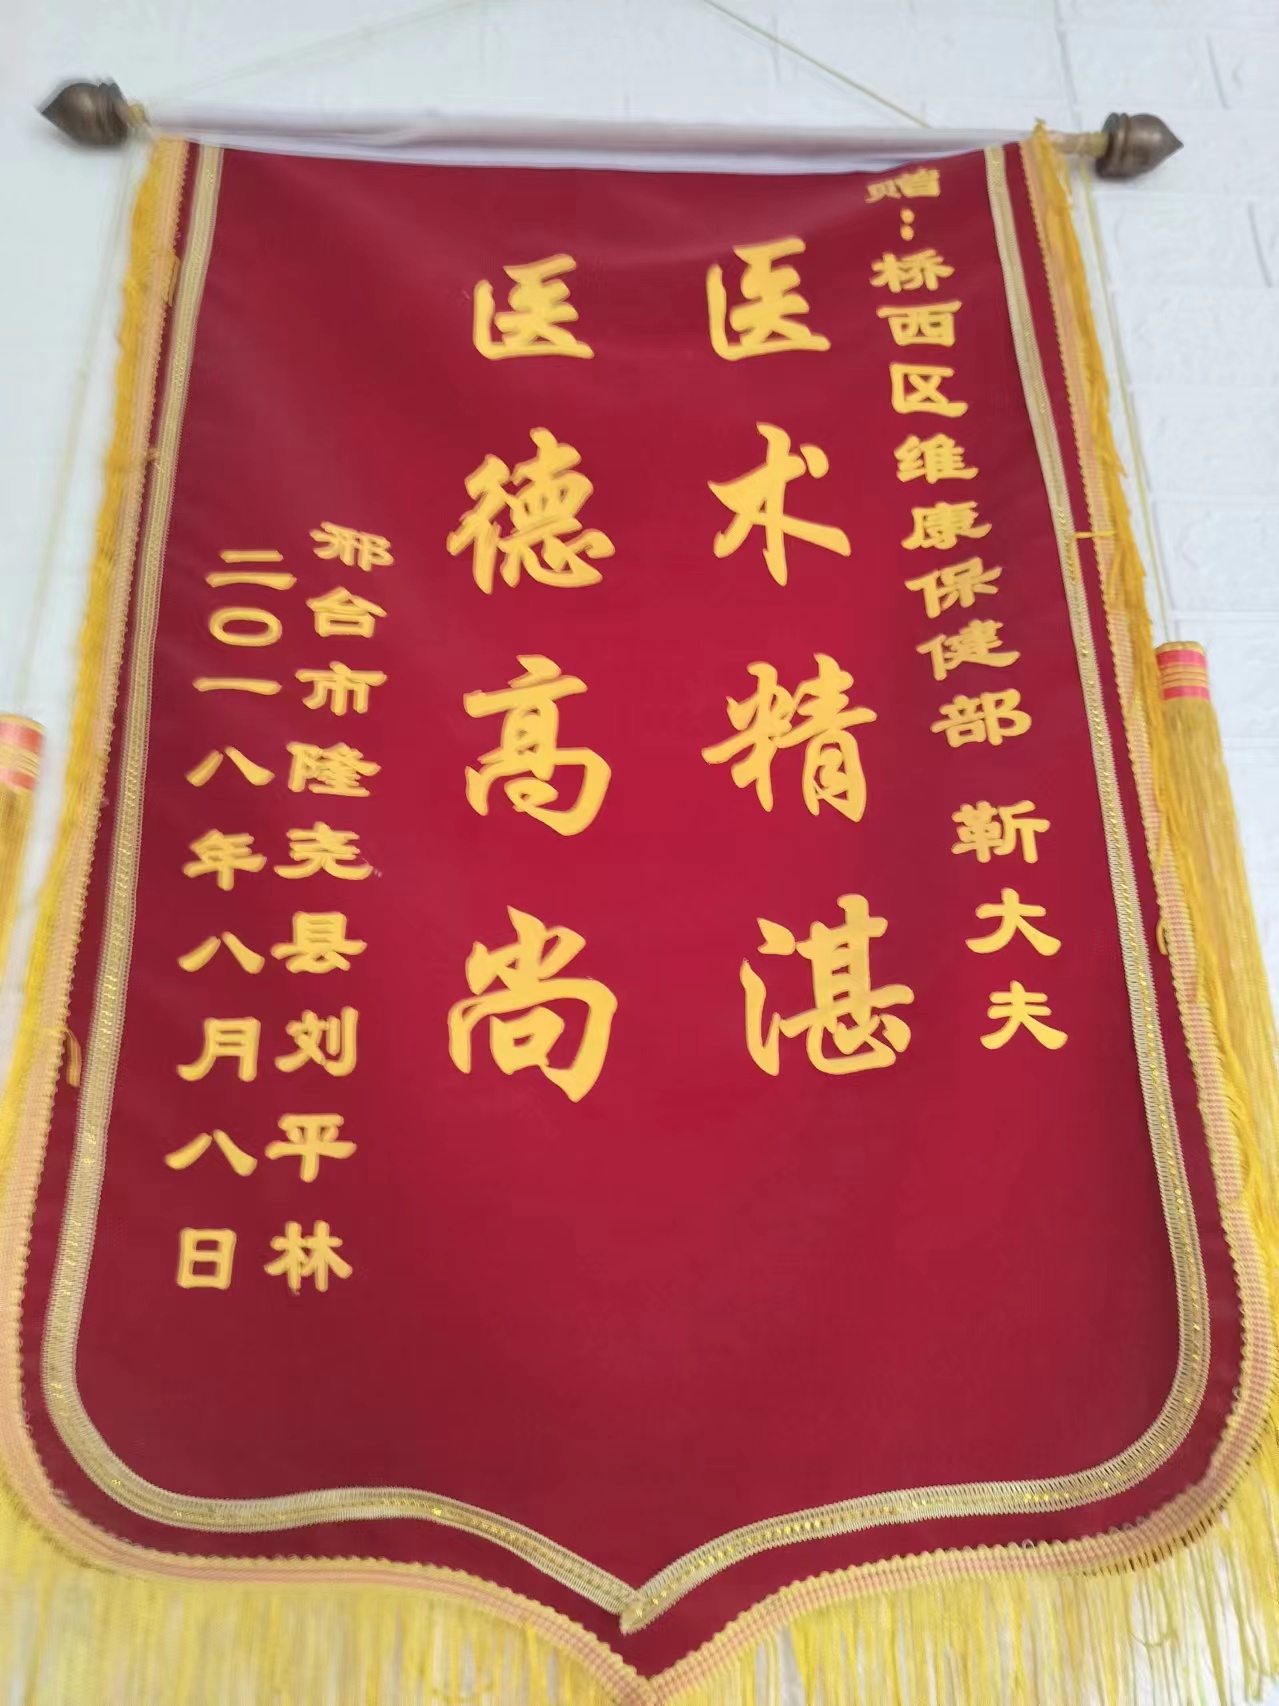 赠：桥西区维康保健部 靳大夫
医术精湛
医德高尚
邢台市隆尧县刘平林
二〇一八年八月八日